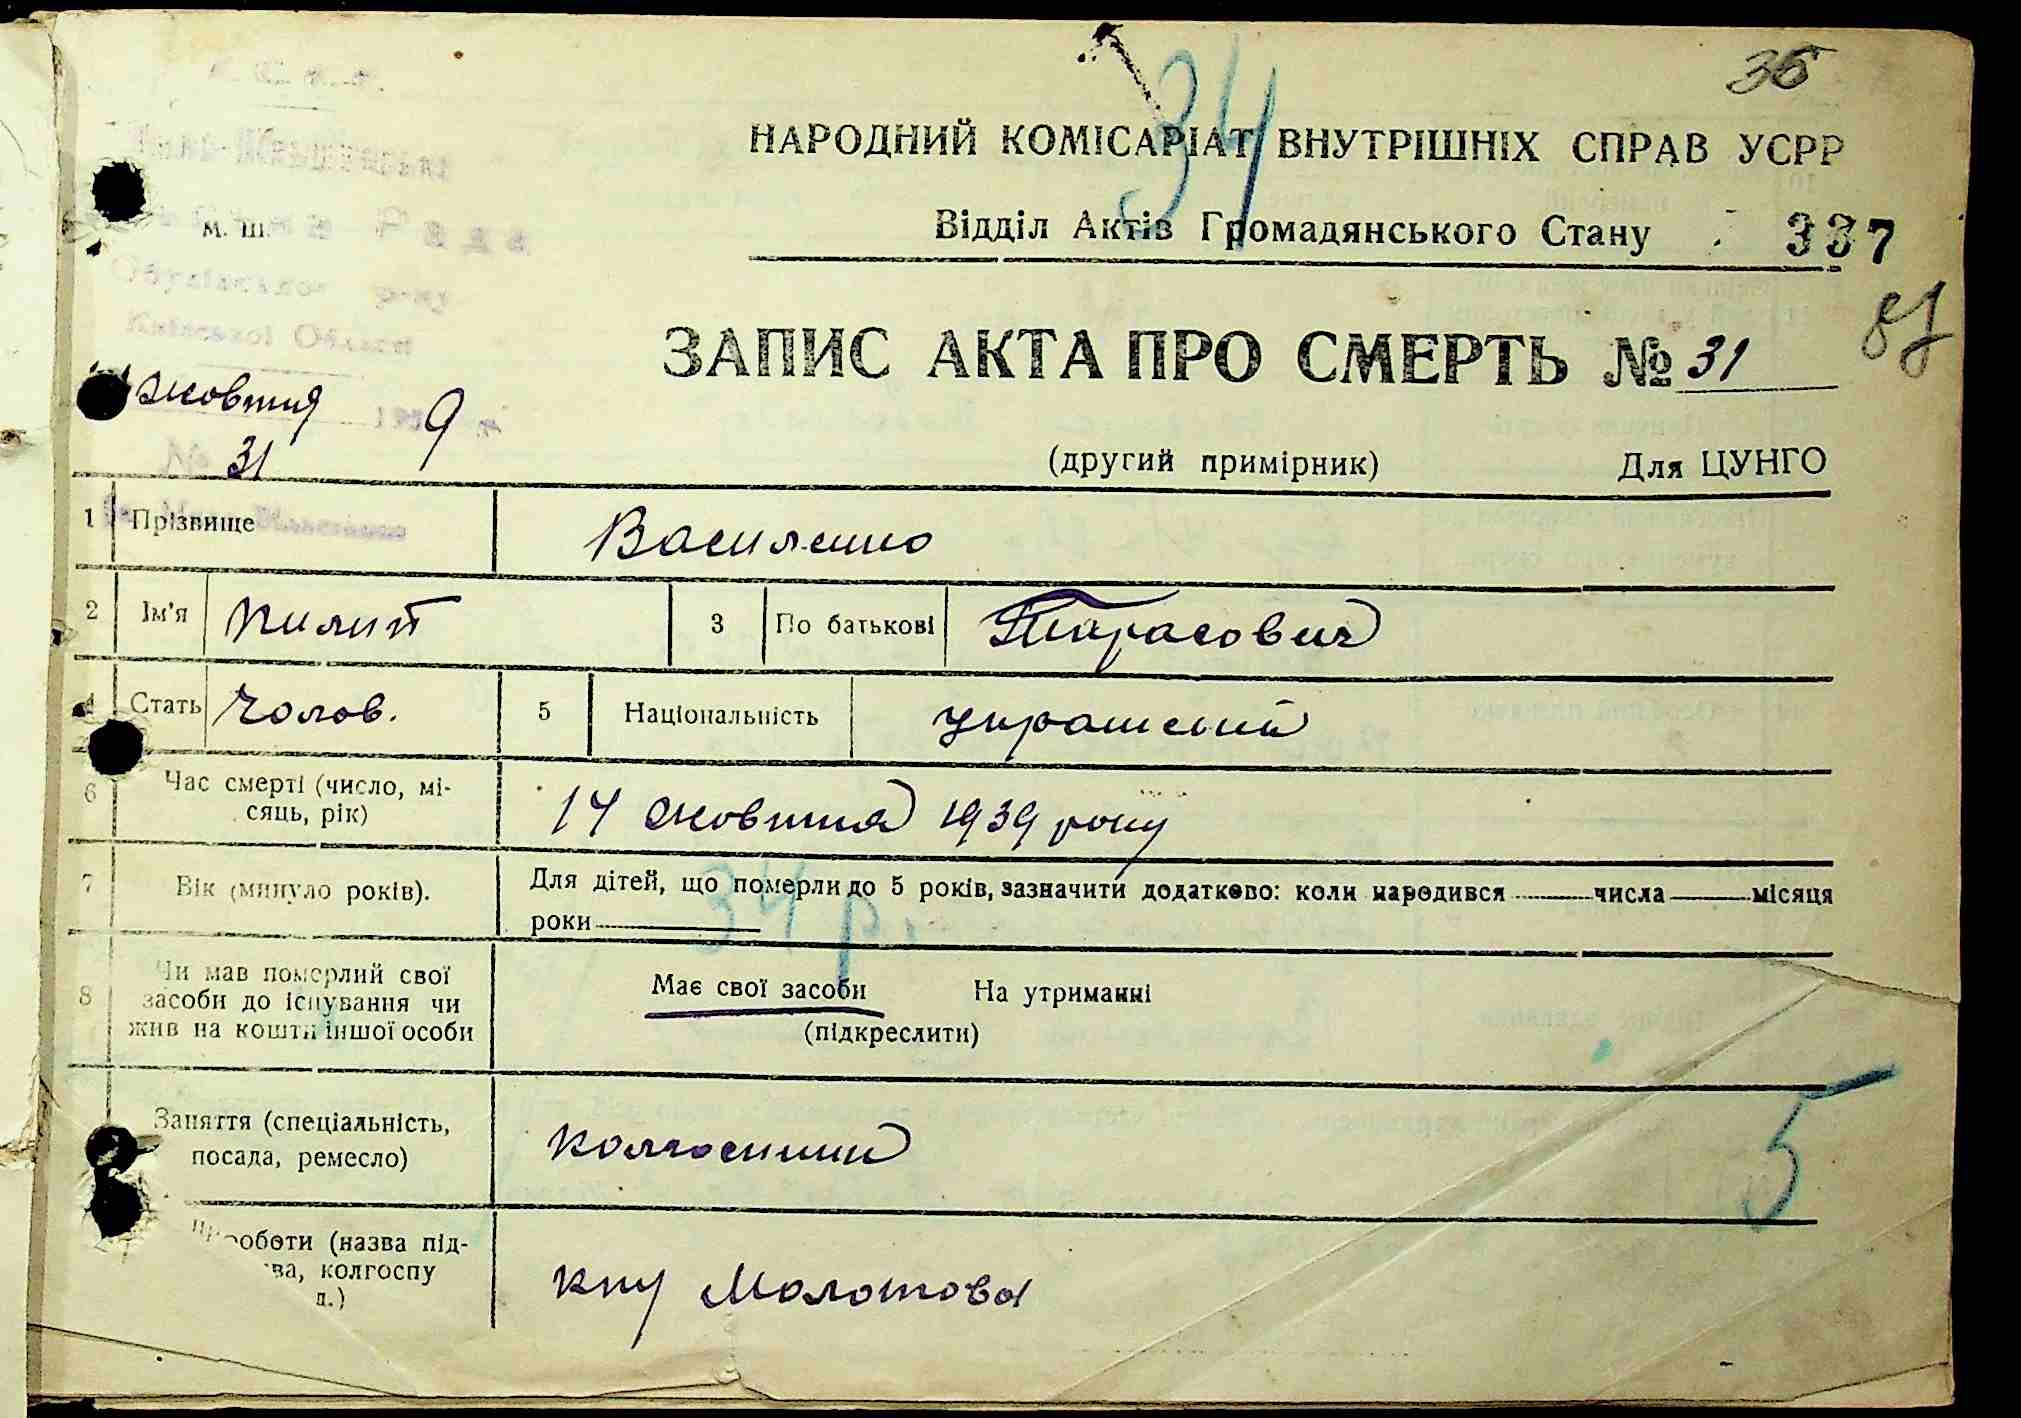 34
35
НАРОДНИЙ КОМІСАРІАТ ВНУТРІШНІХ СПРАВ УСРР
М. Ш.
Відділ Актів Громадянського Стану
337
Київської Області
ЗАПИС АКТА ПРО СМЕРТЬ № 31
жовтня 1939 р.
№ 31
(другий примірник) Для ЦУНГО
1 Прізвище Василенко
2 Ім'я Пилип 3 По батькові Тарасович
4 Стать Чолов. 5 Національність український
6 Час смерті (число, мі-
сяць, рік) 14 жовтня 1939 року
7 Вік (минуло років). Для дітей, що померли до 5 років, зазначити додатково: коли народився числа місяця
роки
34 р.
8 Чи мав померлий свої
засоби до існування чи
жив на кошти іншої особи
Має свої засоби На утриманні
(підкреслити)
Заняття (спеціальність,
посада, ремесло) колгоспник
5
роботи (назва під-
ва, колгоспу
д.)
кпу Молотова